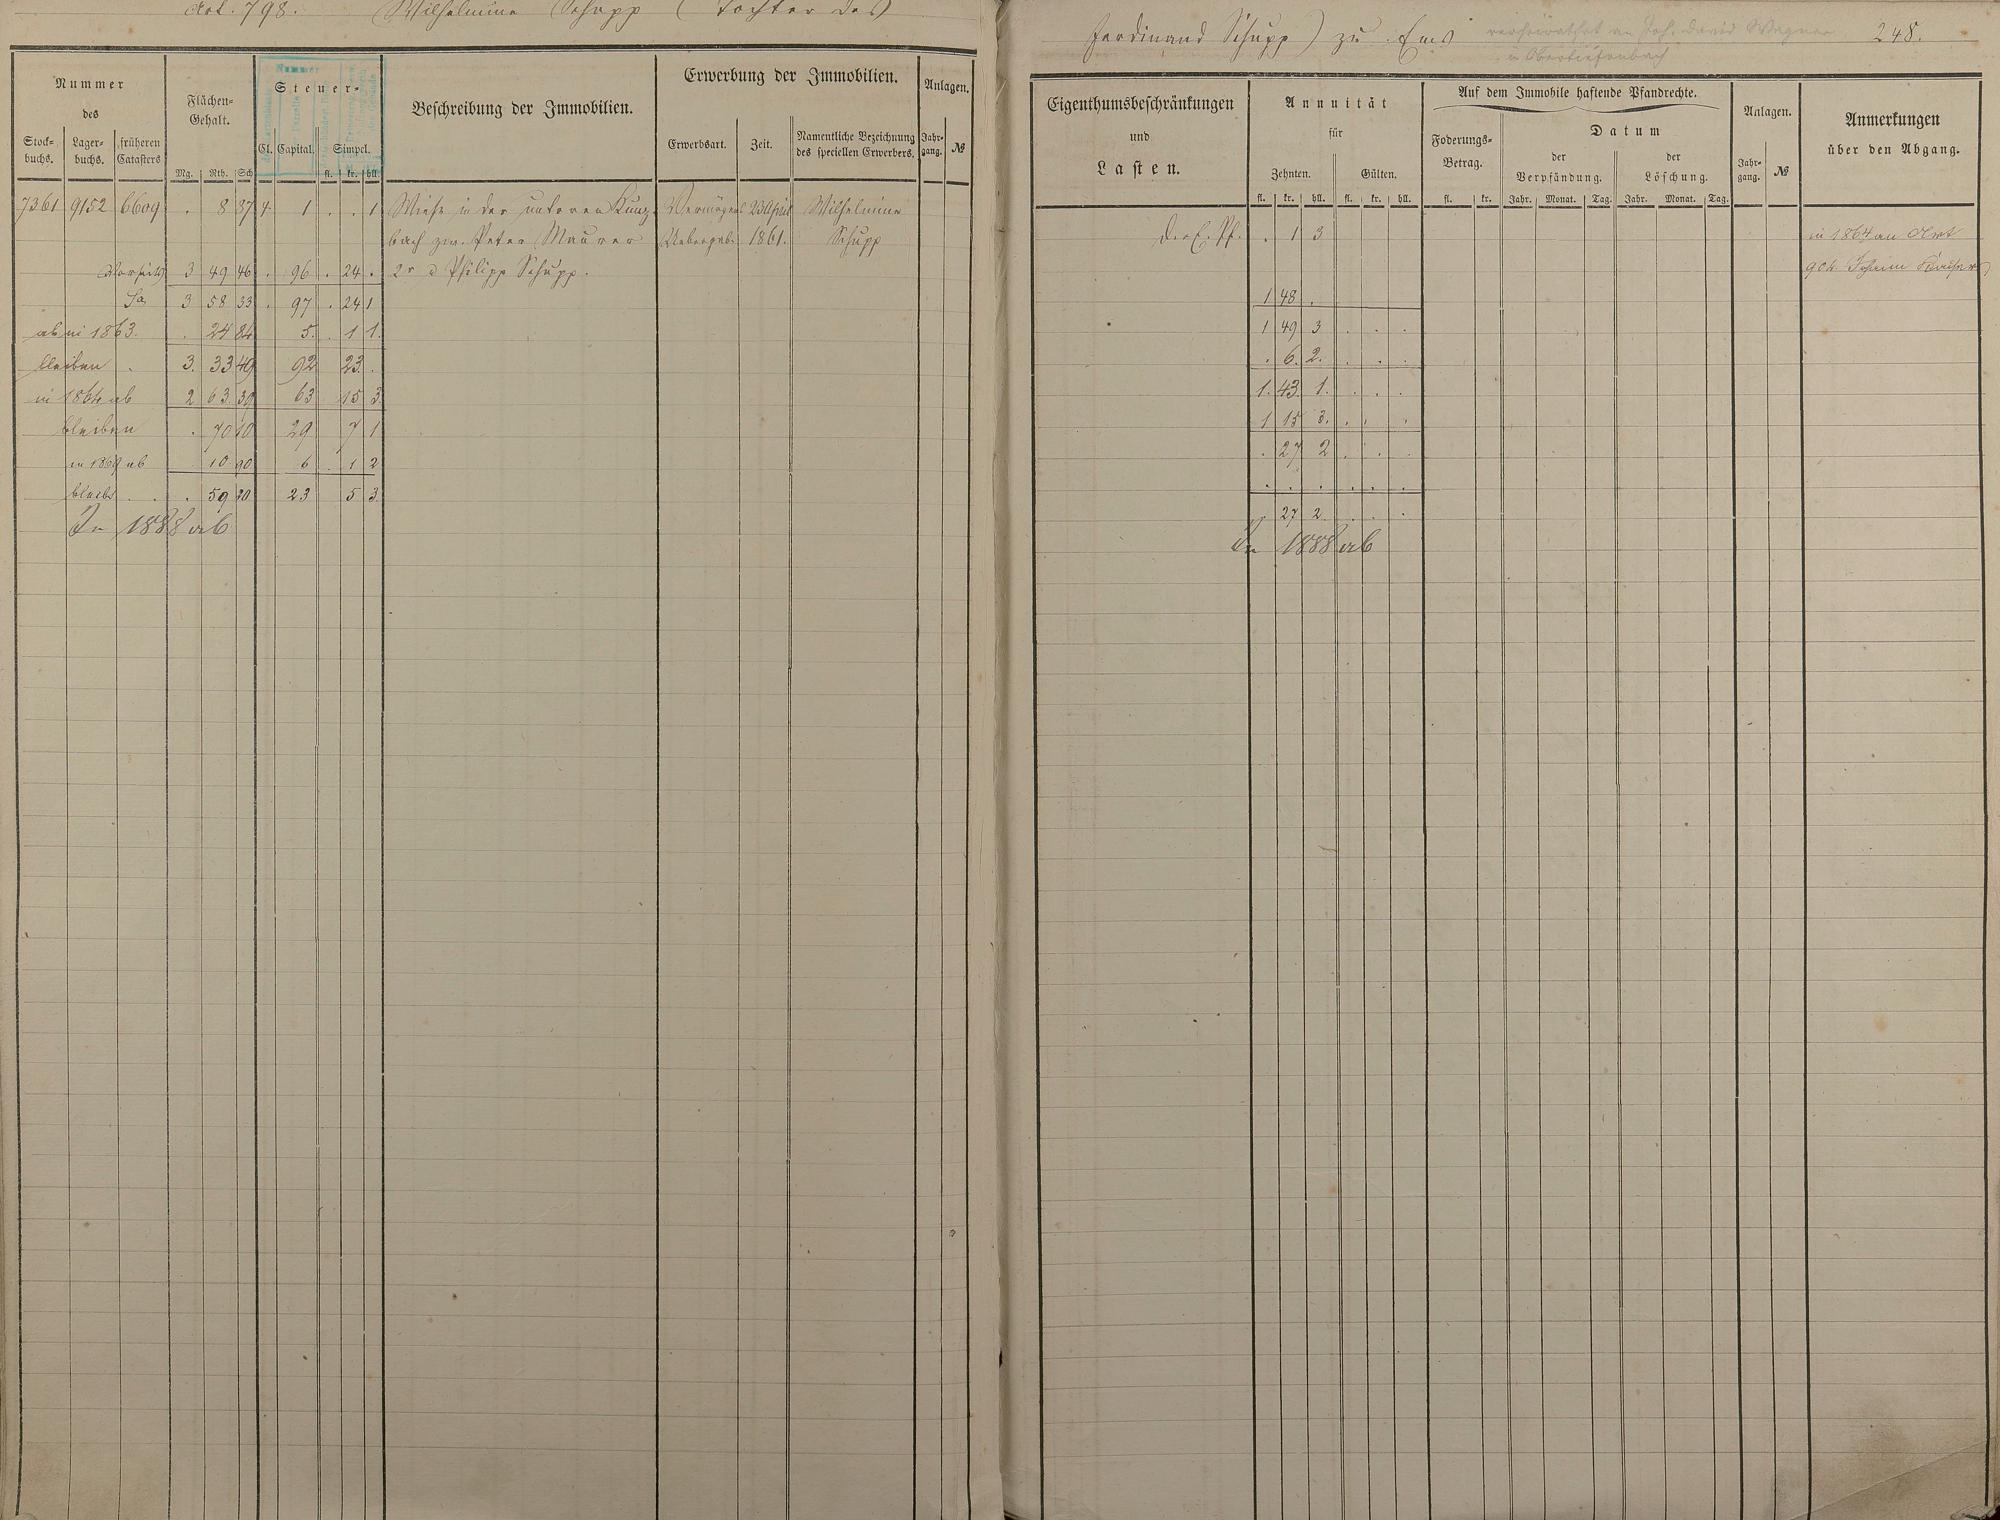 Art. 798. Wilhelmine Schupp (Tochter des
Nummer
des
Stock-
buchs.
Lager-
buchs.
früheren
Catasters
Flächen-
Gehalt.
Mg. Rth. Sch
Nummer
Steuer-
Cl. Capital. Simpel.
fl. kr. hll.
Beschreibung der Immobilien.
Erwerbung der Immobilien.
Erwerbsart. Zeit.
Namentliche Bezeichnung
des speciellen Erwerbers.
Anlagen.
Jahr-
gang.
№
7361 9152 6609 . 8 87 4. 1 . . 1 Wiese in der unteren Kunz- Vermögens 23 April Wilhelmine
bach zw. Peter Maurer Uebergabe 1861. Schupp
Vorseite 3 49 46 . 96 . 24 . 2r u Philipp Schupp.
Sa 3 58 33 . 97 . 24 1
ab in 1863. . 24 84 5. . 1 1.
bleiben . 3. 33 49 92 23 .
in 1864 ab 2 63 39 63 15 3.
bleiben . 70 10 29 7 1
in 1869 ab 10 90 6 . 1 2
bleibt . . . 59 20 23 5 3
In 1888 ab
Ferdinand Schupp) zu Ems verheirathet an Joh. David Wagner 248.
in Obertiefenbach
Eigenthumsbeschränkungen
und
Lasten.
Annuität
für
Zehnten. Gülten.
fl. kr. hll. fl. kr. hll.
Auf dem Immobile haftende Pfandrechte.
Foderungs-
Betrag.
fl. kr.
Datum
der
Verpfändung.
der
Löschung.
Jahr. Monat. Tag. Jahr. Monat. Tag.
Anlagen.
Jahr-
gang.
№
Anmerkungen
über den Abgang.
d. E. Pf. . 1 3 in 1864 an Art
904
1 48 .
1 49 3 . . .
. 6. 2. . . .
1. 43. 1. . . .
1 15 3. . . .
. 27 2 . . .
. . . . . .
. 27 2 . . .
In 1888 ab